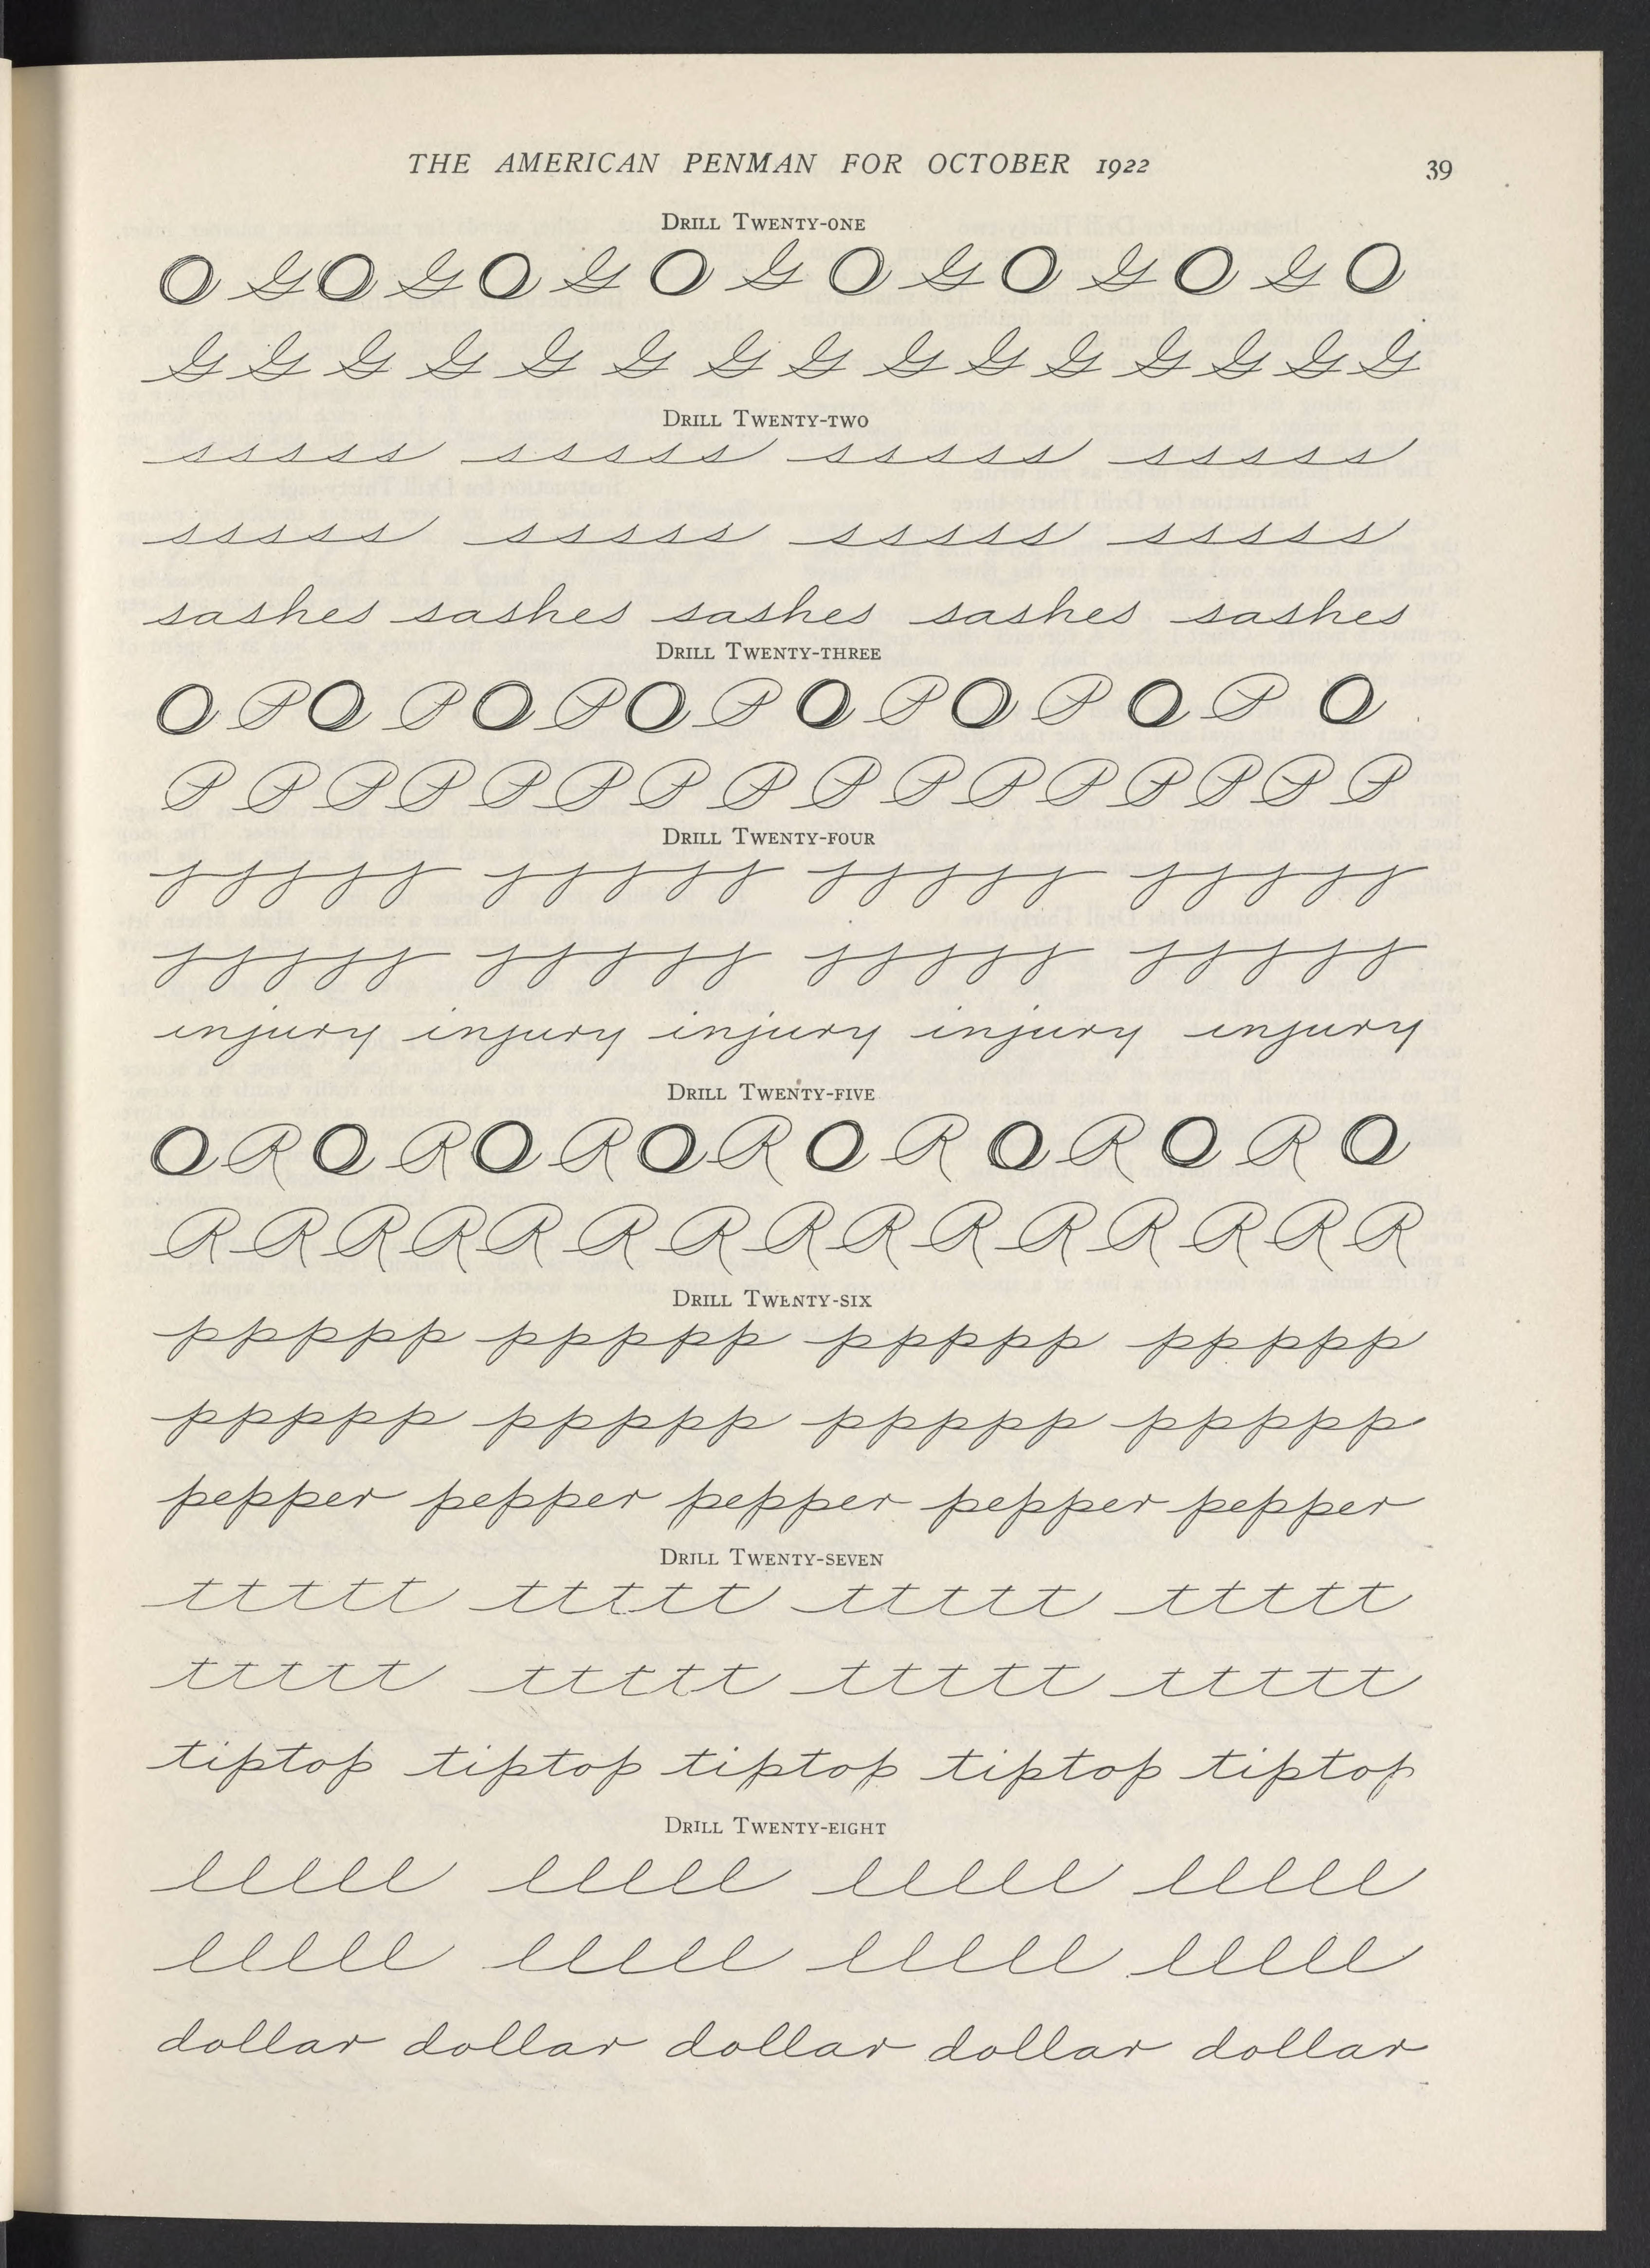 THE AMERICAN PENMAN FOR OCTOBER 1922 39
DRILL TWENTY-ONE
O G O G O G O G O G O G O G O
G G G G G G G G G G G G G G G
DRILL TWENTY-TWO
sssss sssss sssss sssss
sssss sssss sssss sssss
sashes sashes sashes sashes sashes
DRILL TWENTY-THREE
O P O P O P O P O P O P O P O
P P P P P P P P P P P P P P P P
DRILL TWENTY-FOUR
jjjjj jjjjj jjjjj jjjjj
jjjjj jjjjj jjjjj jjjjj
injury injury injury injury injury
DRILL TWENTY-FIVE
O R O R O R O R O R O R O R O
R R R R R R R R R R R R R R R
DRILL TWENTY-SIX
ppppp ppppp ppppp ppppp
ppppp ppppp ppppp ppppp
pepper pepper pepper pepper pepper
DRILL TWENTY-SEVEN
ttttt ttttt ttttt ttttt
ttttt ttttt ttttt ttttt
tiptop tiptop tiptop tiptop tiptop
DRILL TWENTY-EIGHT
lllll lllll lllll lllll
lllll lllll lllll lllll
dollar dollar dollar dollar dollar